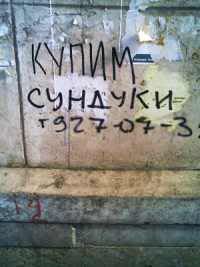 КУПИМ
СУНДУКИ
т927-07-3